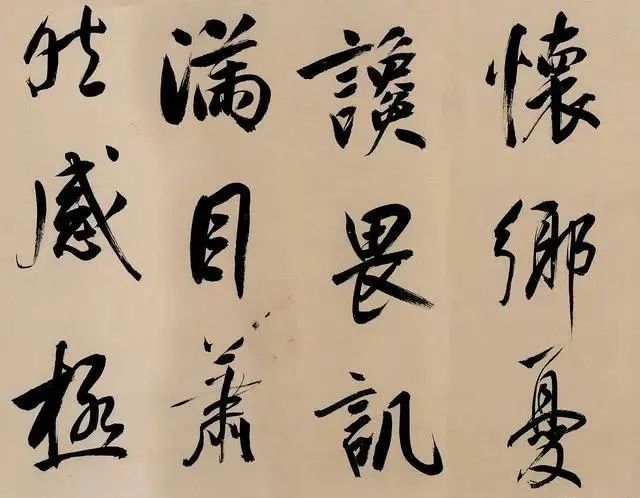 懷鄉憂
讒畏譏
滿目蕭
然感極